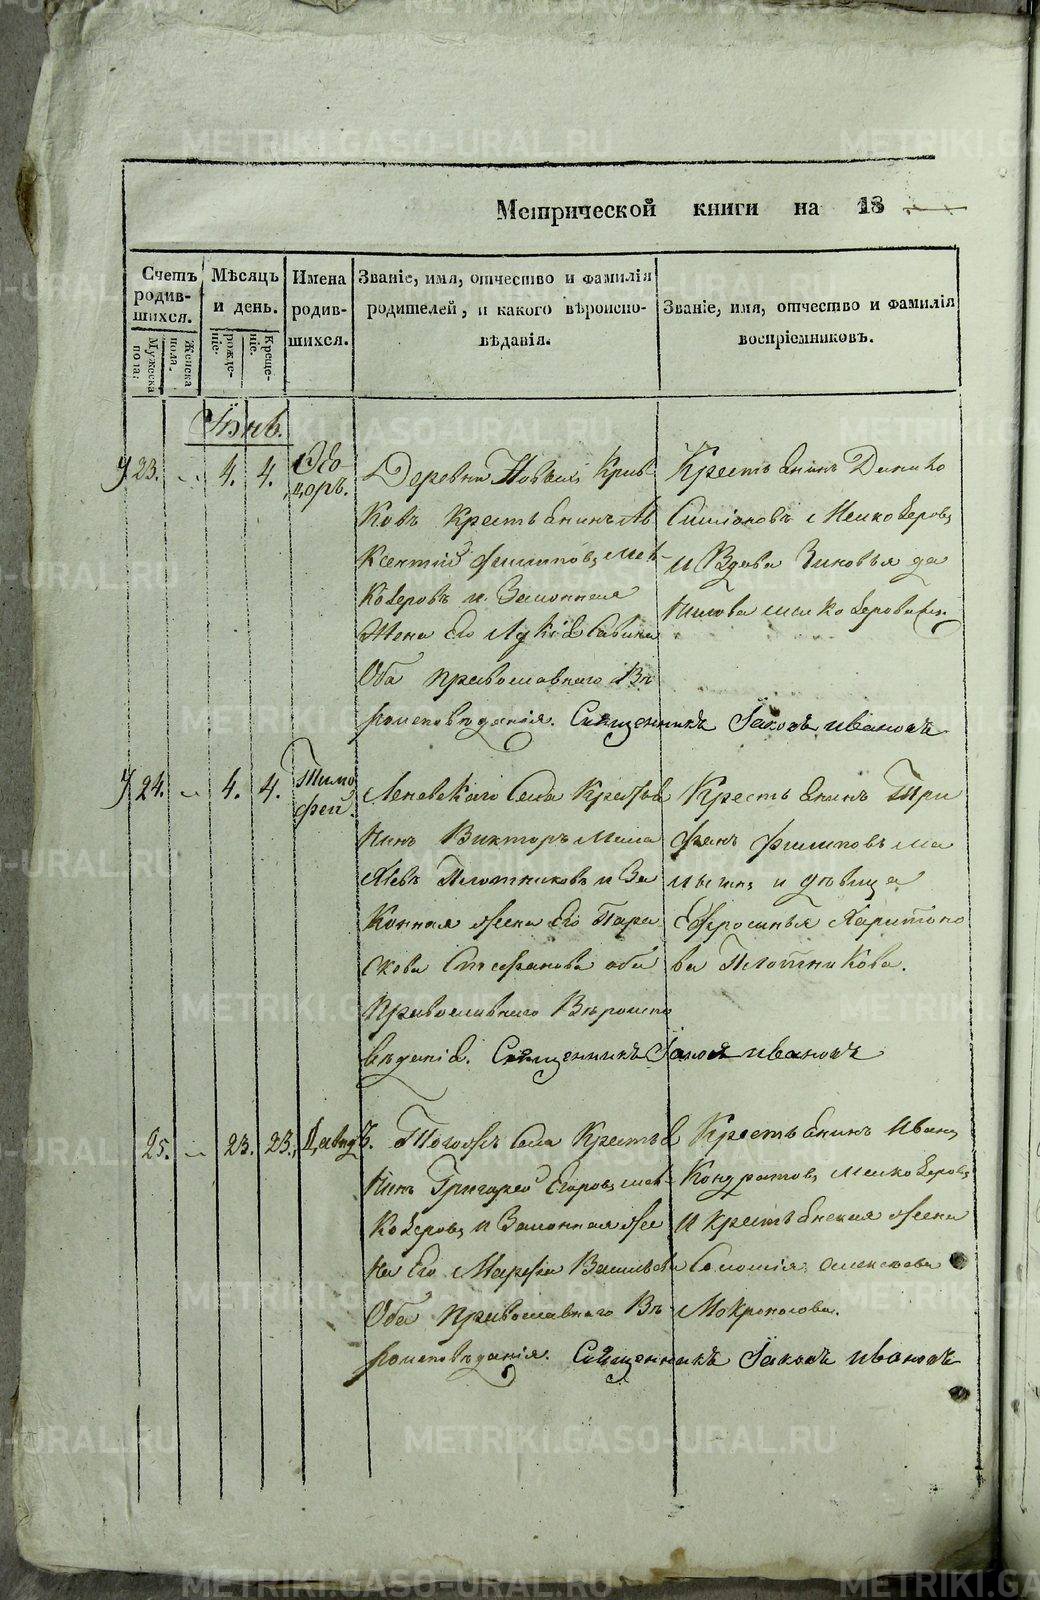 Метрической книги на 18
Счетъ родившихся.
Мужеска пола.
Женска пола.
Мѣсяцъ и день.
рожденіе.
Крещеніе.
Имена родившихся.
Званіе, имя, отчество и фамилія родителей, и какого вѣроисповѣданія.
Званіе, имя, отчество и фамилія воспріемниковъ.
У 23. 4. 4. Ѳео
доръ.
Деревни Новыхъ Крив
ковъ Крестьенинъ Ав
ксентій Филиповъ Мел
козеровъ и Законная
Жена Его
Оба православнаго Вѣ
роисповѣданія. Священникъ Іаковъ Ивановъ
Крестьенинъ Данило
Симіоновъ Мелкозеровъ
и Вдова Зиновья Да
нилова Мелкозеровыхъ
У 24. 4. 4. Тимо
фей.
Леневскаго Села Крестье
нинъ Викторъ Миха
Плотниковъ и За
конная Жена Его Пара
скова Стефанова оба
православнаго Вѣроиспо
вѣданія. Священникъ Іаковъ Ивановъ
Крестьенинъ Три
фанъ Филиповъ Ма
и дѣвица
Ефросинья Харитоно
ва Плотникова.
25. 23. 23. Давидъ.
Тогожъ Села Крестье
нинъ Григорей Егоровъ Мел
козеровъ и Законная Же
на Его Марфа Васильева
Оба православнаго Вѣ
роисповѣданія. Священникъ Іаковъ Ивановъ
Крестьенинъ Иванъ
Кондратовъ Мелкозеровъ
и крестьенская жена
Соломія Алексеева
Мокроносова.
METRIKI.GASO-URAL.RU